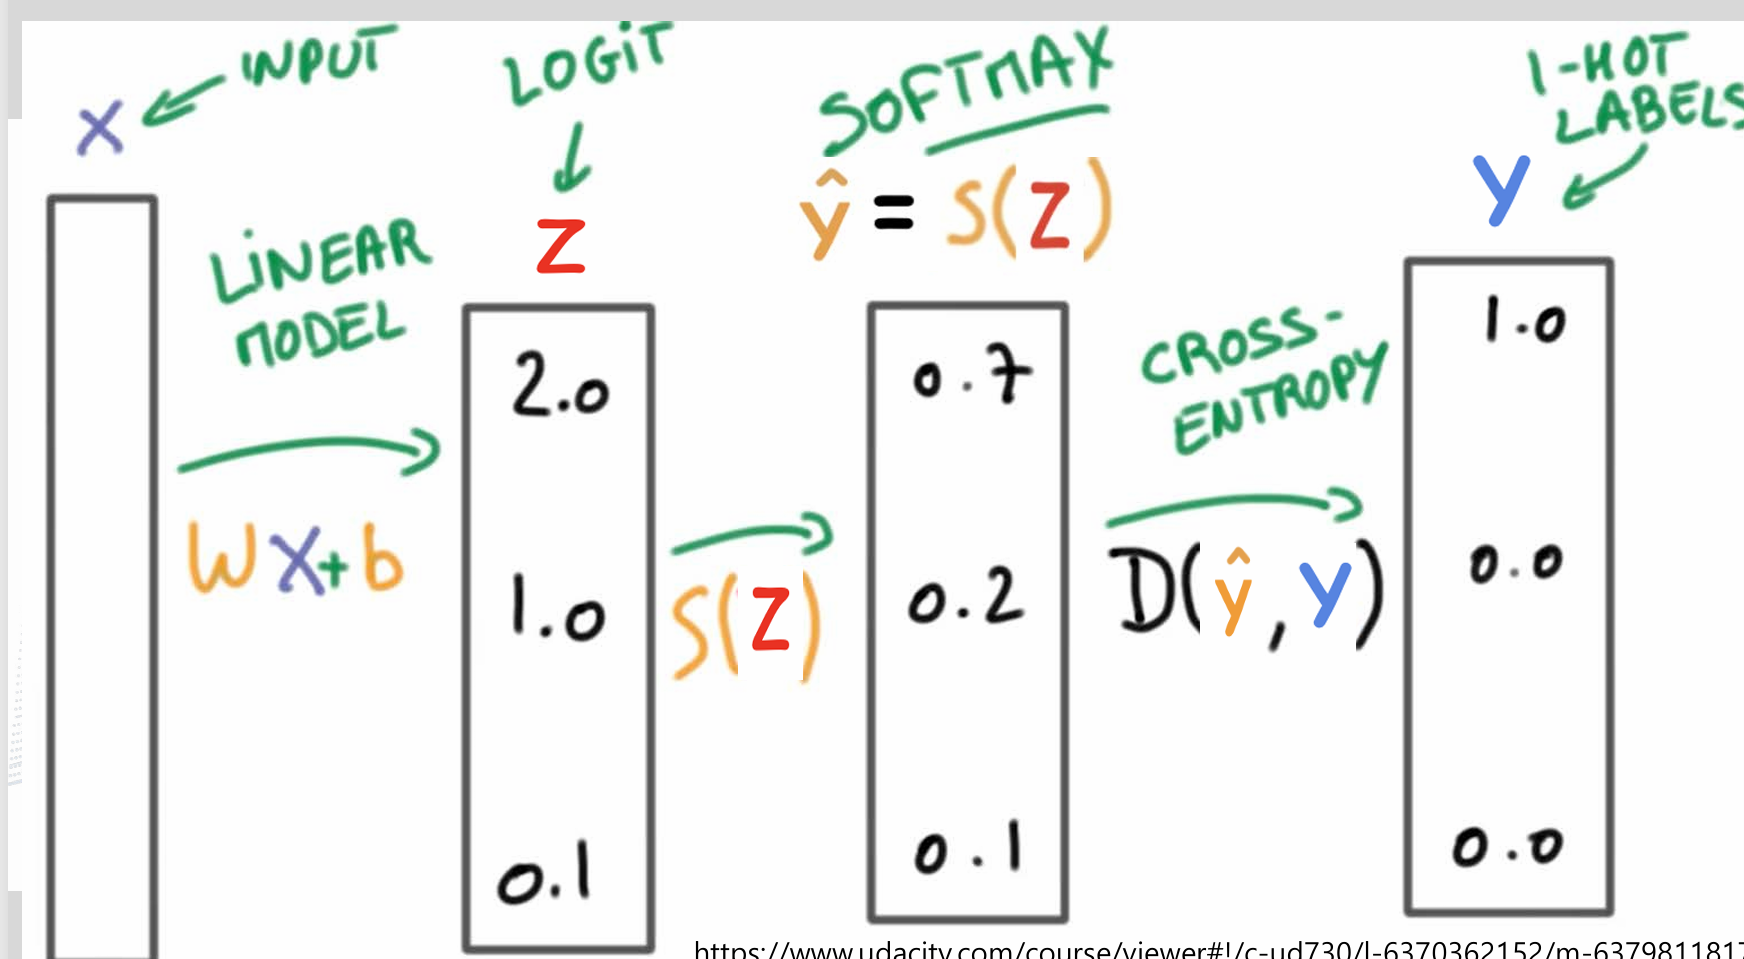 X
INPUT
LINEAR
MODEL
WX+b
LOGIT
Z
2.0
1.0
0.1
S(Z)
SOFTMAX
ŷ = S(Z)
0.7
0.2
0.1
CROSS-
ENTROPY
D(ŷ, Y)
1-HOT
LABELS
Y
1.0
0.0
0.0
https://www.udacity.com/course/viewer#!/c-ud730/l-6370362152/m-6379811817